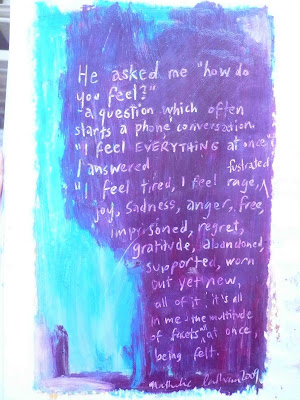 He asked me "how do
you feel?"
-a question which often
starts a phone conversation.
"I feel EVERYTHING at once"
I answered
fustrated
"I feel tired, I feel rage, ^
joy, sadness, anger, free,
imprisoned, regret,
gratitude, abandoned,
supported, worn
out yet new,
all of it, it's all
in me - the multitude
of facets all at once,
being felt.
2009